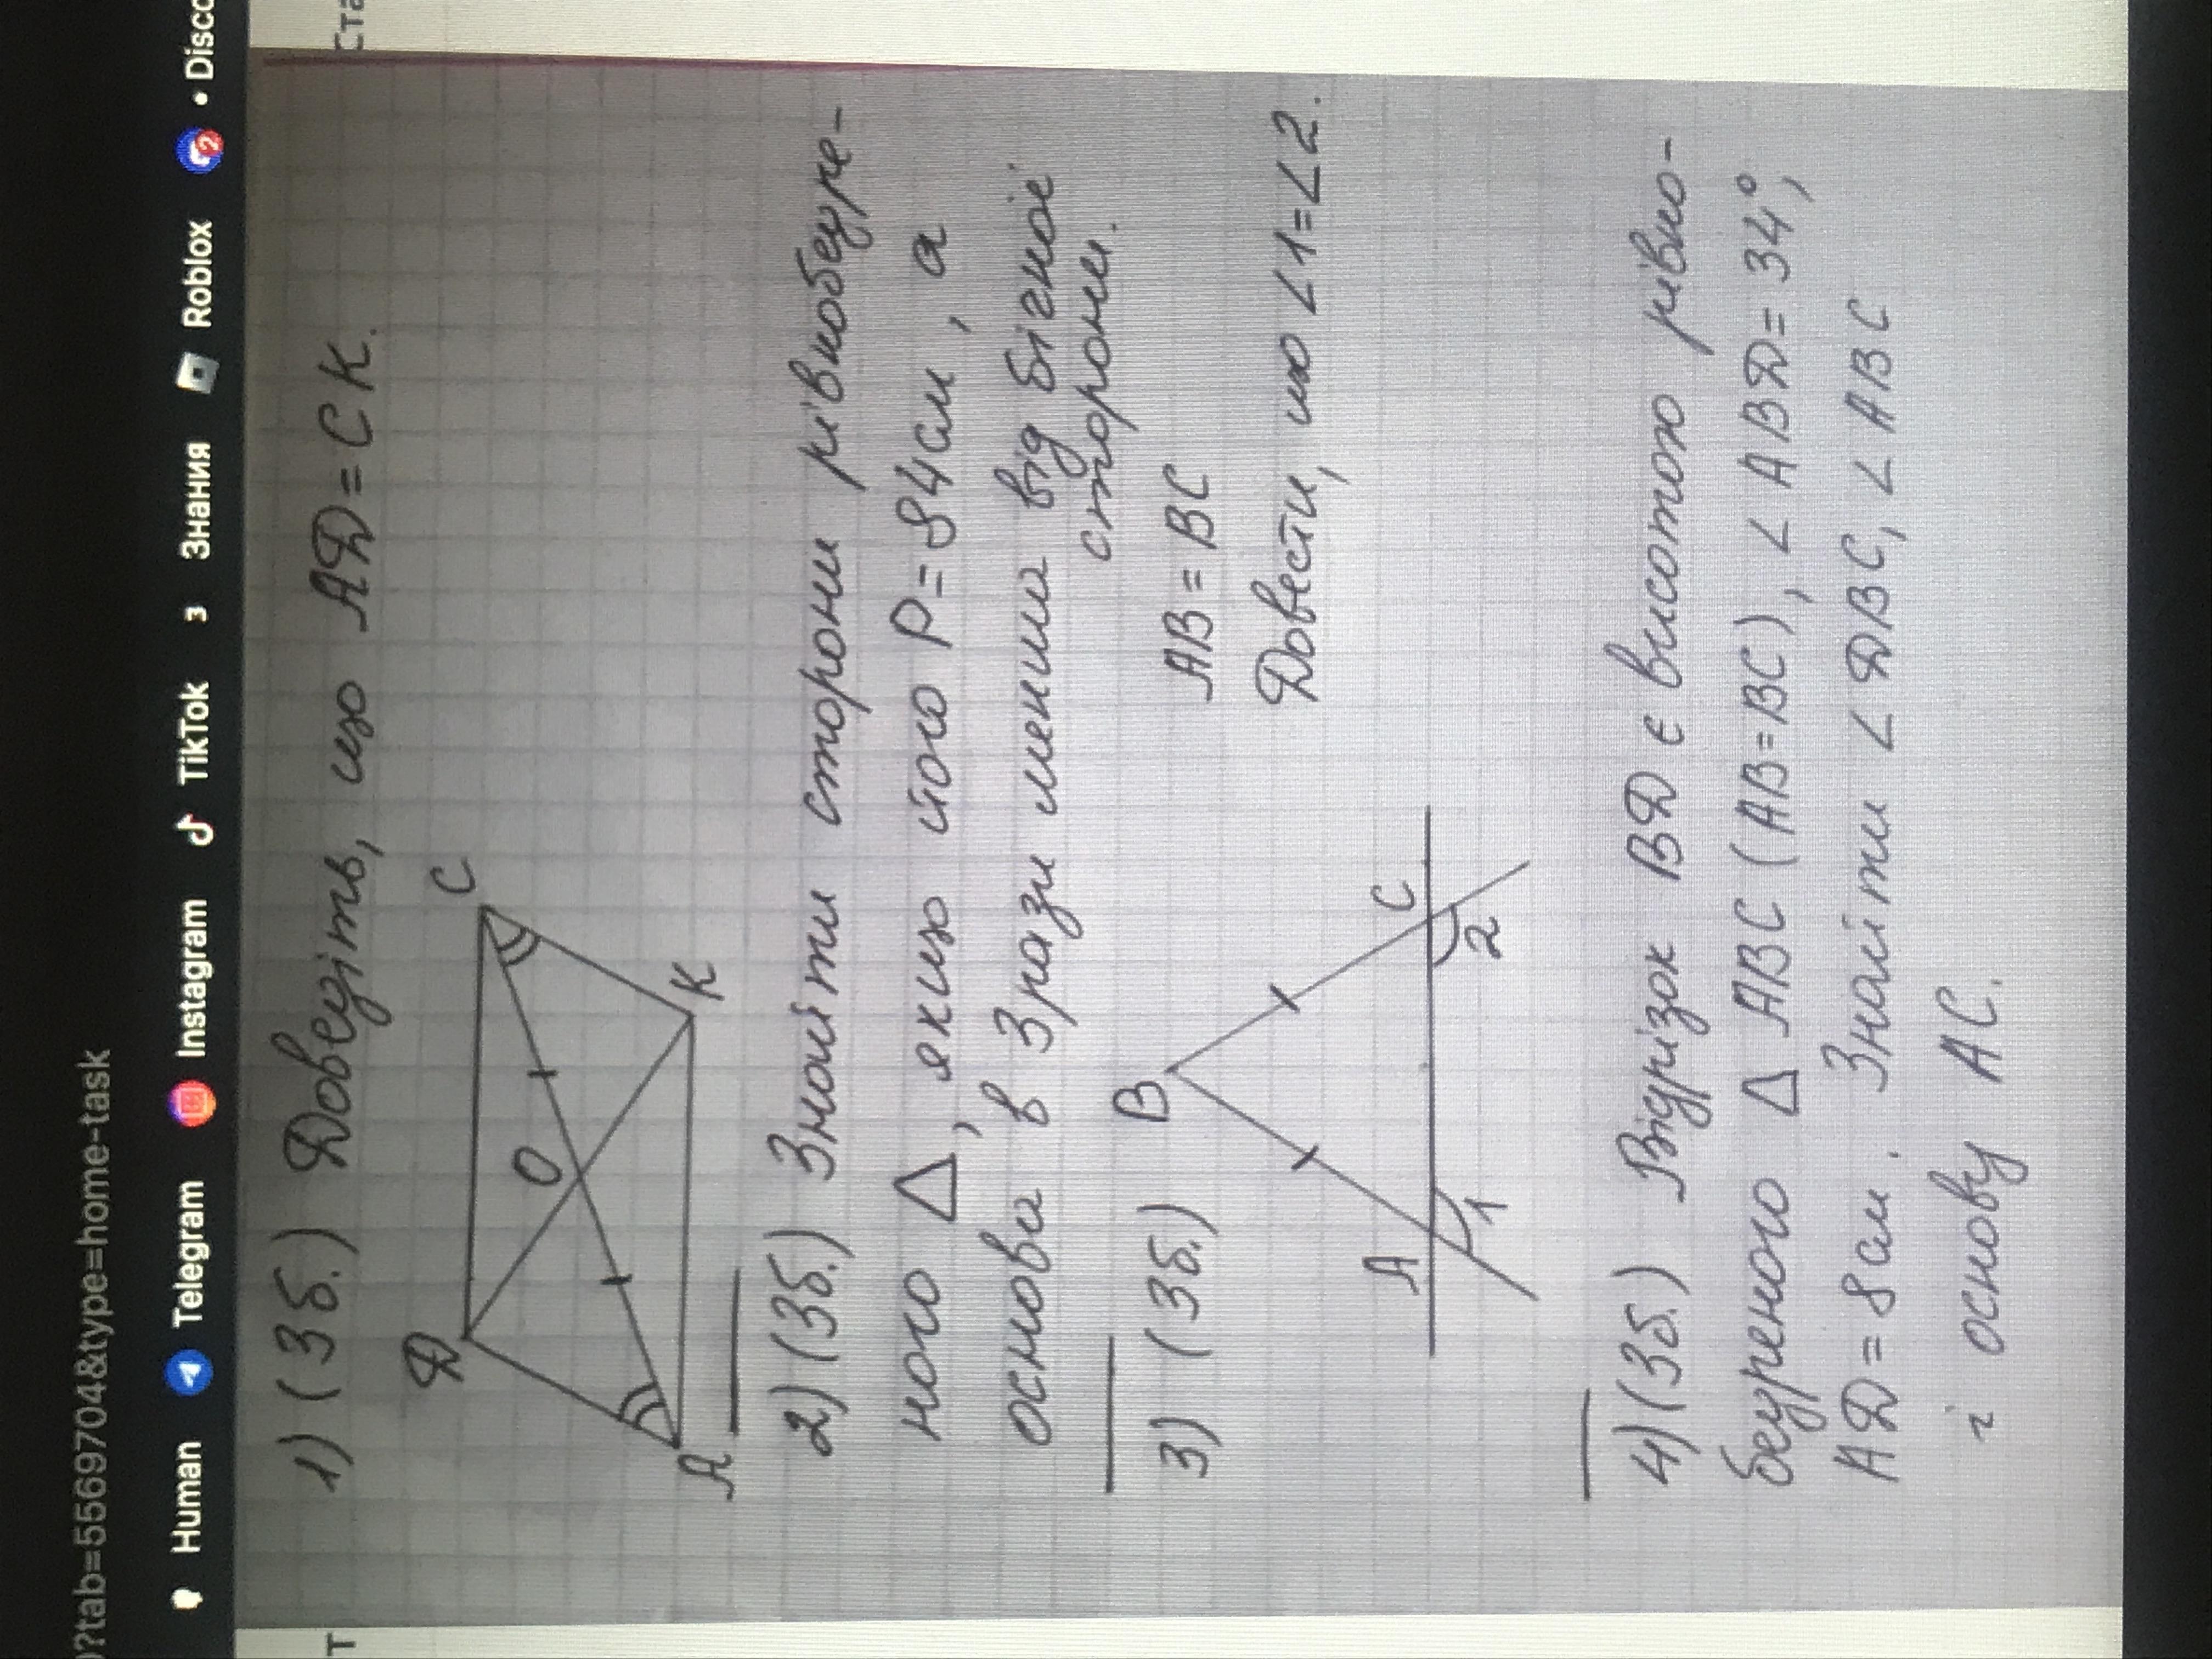 )?tab=55569704&type=home-task
Human Telegram Instagram TikTok з Знания Roblox 2 • Disco
т
Ста
1) (3 б.) Доведіть, що АД=СК.
Д
С
О
А
К
2) (3б.) Знайти сторони рівнобедре-
ного Δ, якщо його Р=84см, а
основа в 3 рази менша від бічної
сторони.
3) (3б.)
АВ=ВС
Довести, що ∠1=∠2.
В
А
С
1
2
4) (3б.) Відрізок ВД є висотою рівно-
бедреного Δ АВС (АВ=ВС), ∠АВД=34°,
АД=8см. Знайти ∠ДВС, ∠АВС
і основу АС.